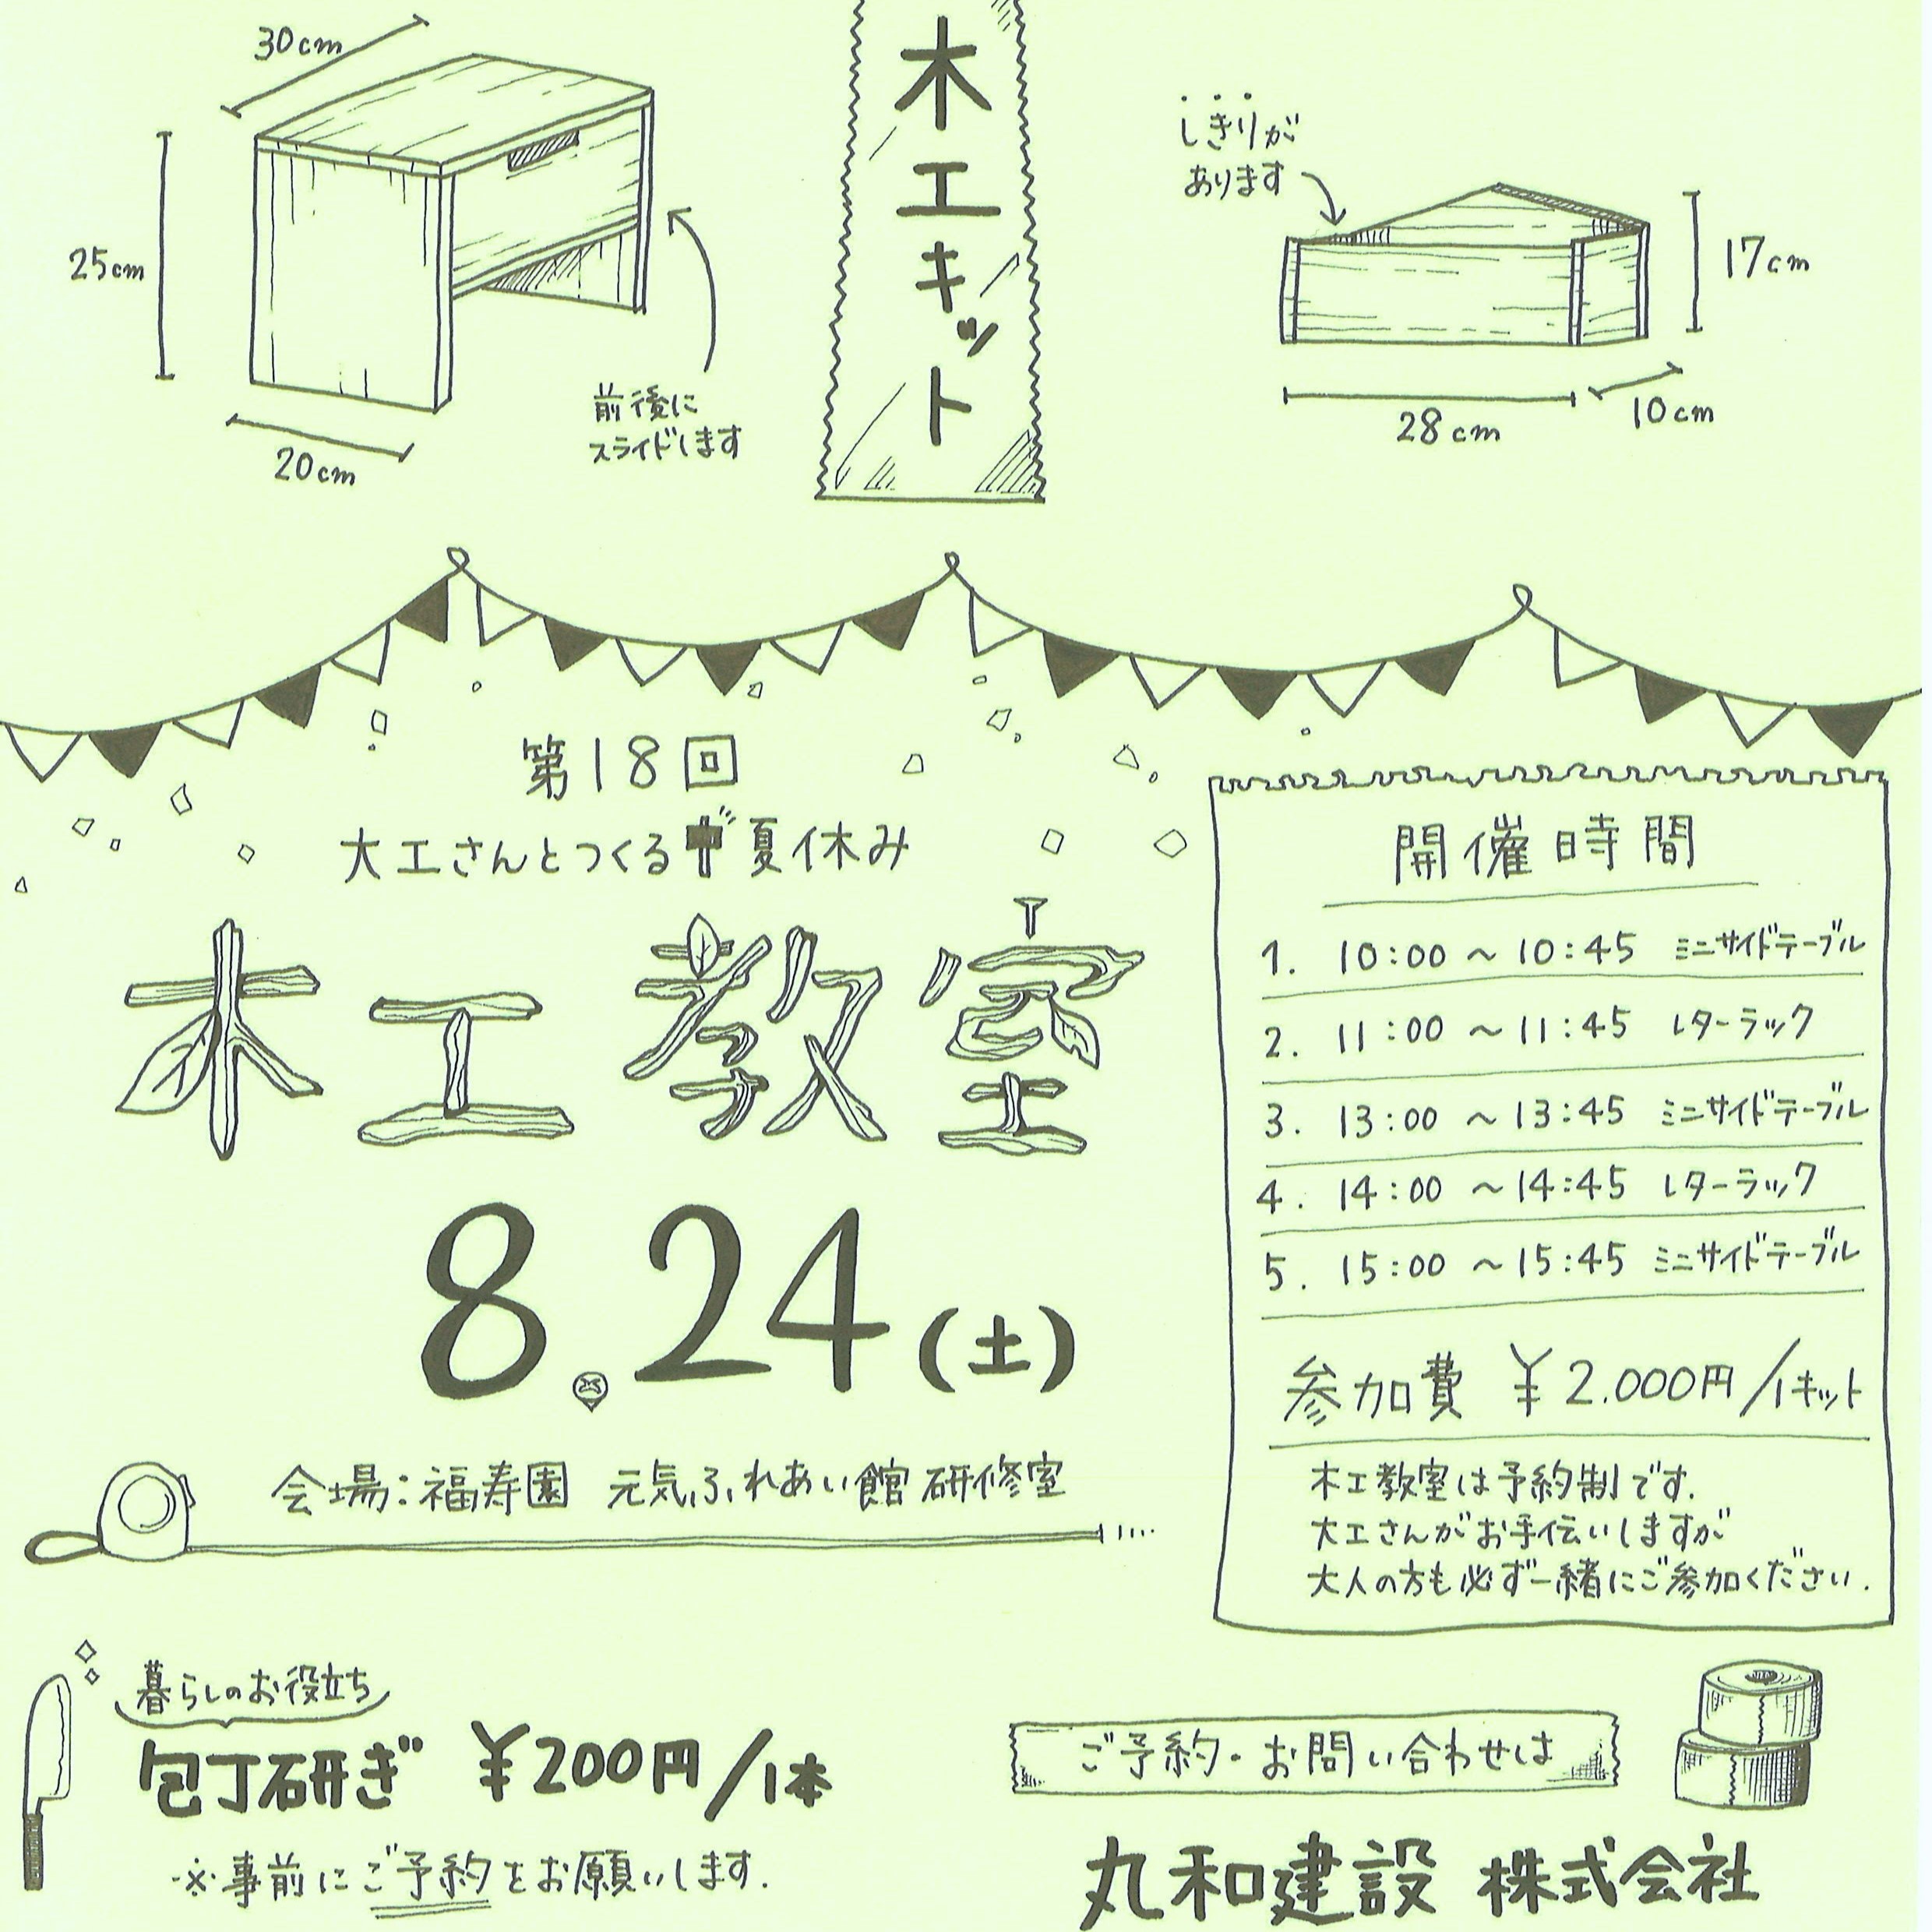 30cm
25cm
20cm
前後に
スライドします
木工キット
しきりが
あります
17cm
28cm
10cm
第18回
大工さんとつくる夏休み
木工教室
8.24(土)
会場:福寿園 元気ふれあい館 研修室
開催時間
1. 10:00 ~ 10:45 ミニサイドテーブル
2. 11:00 ~ 11:45 レターラック
3. 13:00 ~ 13:45 ミニサイドテーブル
4. 14:00 ~ 14:45 レターラック
5. 15:00 ~ 15:45 ミニサイドテーブル
参加費 ¥2.000円/1キット
木工教室は予約制です.
大工さんがお手伝いしますが
大人の方も必ず一緒にご参加ください.
暮らしのお役立ち
包丁研ぎ ¥200円/1本
※事前にご予約をお願いします.
ご予約・お問い合わせは
丸和建設 株式会社